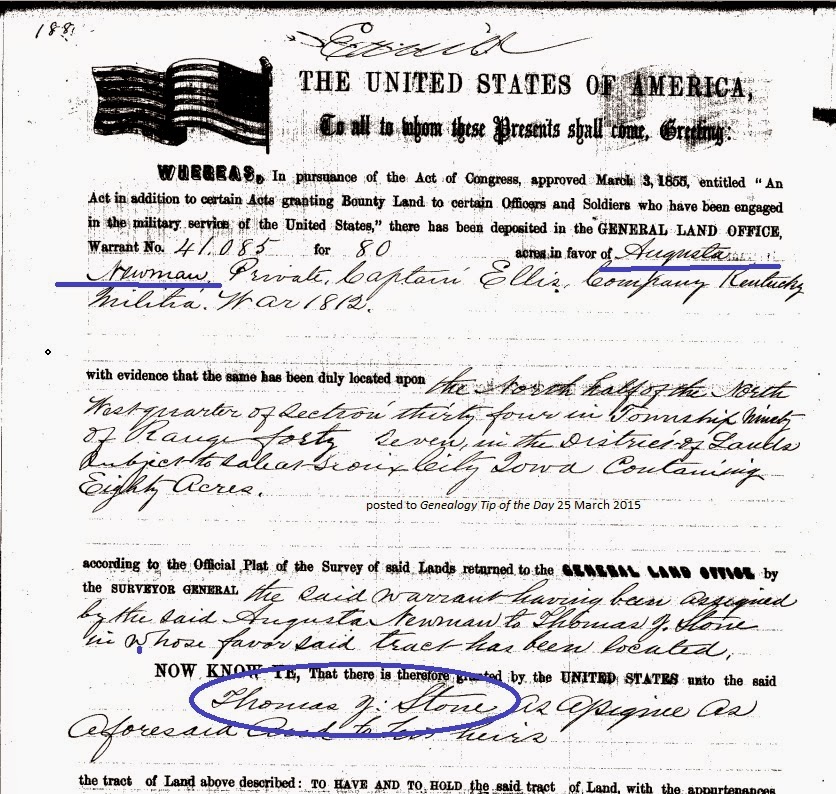 188
THE UNITED STATES OF AMERICA,
To all to whom these Presents shall come, Greeting:
WHEREAS, In pursuance of the Act of Congress, approved March 3, 1855, entitled "An
Act in addition to certain Acts granting Bounty Land to certain Officers and Soldiers who have been engaged
in the military service of the United States," there has been deposited in the GENERAL LAND OFFICE,
Warrant No. 41.085 for 80 acres in favor of Augusta
Newman, Private, Captain Ellis, Company Kentucky
Militia. War 1812.
with evidence that the same has been duly located upon the North half of the North
West quarter of Section thirty four in Township Ninety
of Range forty Seven, in the District of Lands
Subject to Sale at Sioux City Iowa Containing
Eighty Acres.
posted to Genealogy Tip of the Day 25 March 2015
according to the Official Plat of the Survey of said Lands returned to the GENERAL LAND OFFICE by
the SURVEYOR GENERAL the said warrant having been assigned
by the said Augusta Newman to Thomas J. Stone
in whose favor said tract has been located.
NOW KNOW YE, That there is therefore granted by the UNITED STATES unto the said
Thomas J. Stone as assignee as
aforesaid and to his heirs
the tract of Land above described: TO HAVE AND TO HOLD the said tract of Land, with the appurtenances